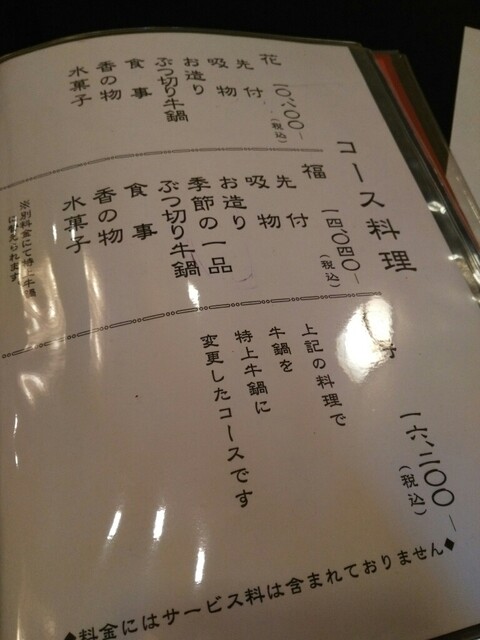 コース料理
花
一〇、八〇〇―
(税込)
先付
吸物
お造り
ぶつ切り牛鍋
食事
香の物
水菓子
福
一四、〇四〇―
(税込)
先付
吸物
お造り
季節の一品
ぶつ切り牛鍋
食事
香の物
水菓子
※別料金にて特上牛鍋
に替えられます
一六、二〇〇―
(税込)
上記の料理で
牛鍋を
特上牛鍋に
変更したコースです
◆料金にはサービス料は含まれておりません◆